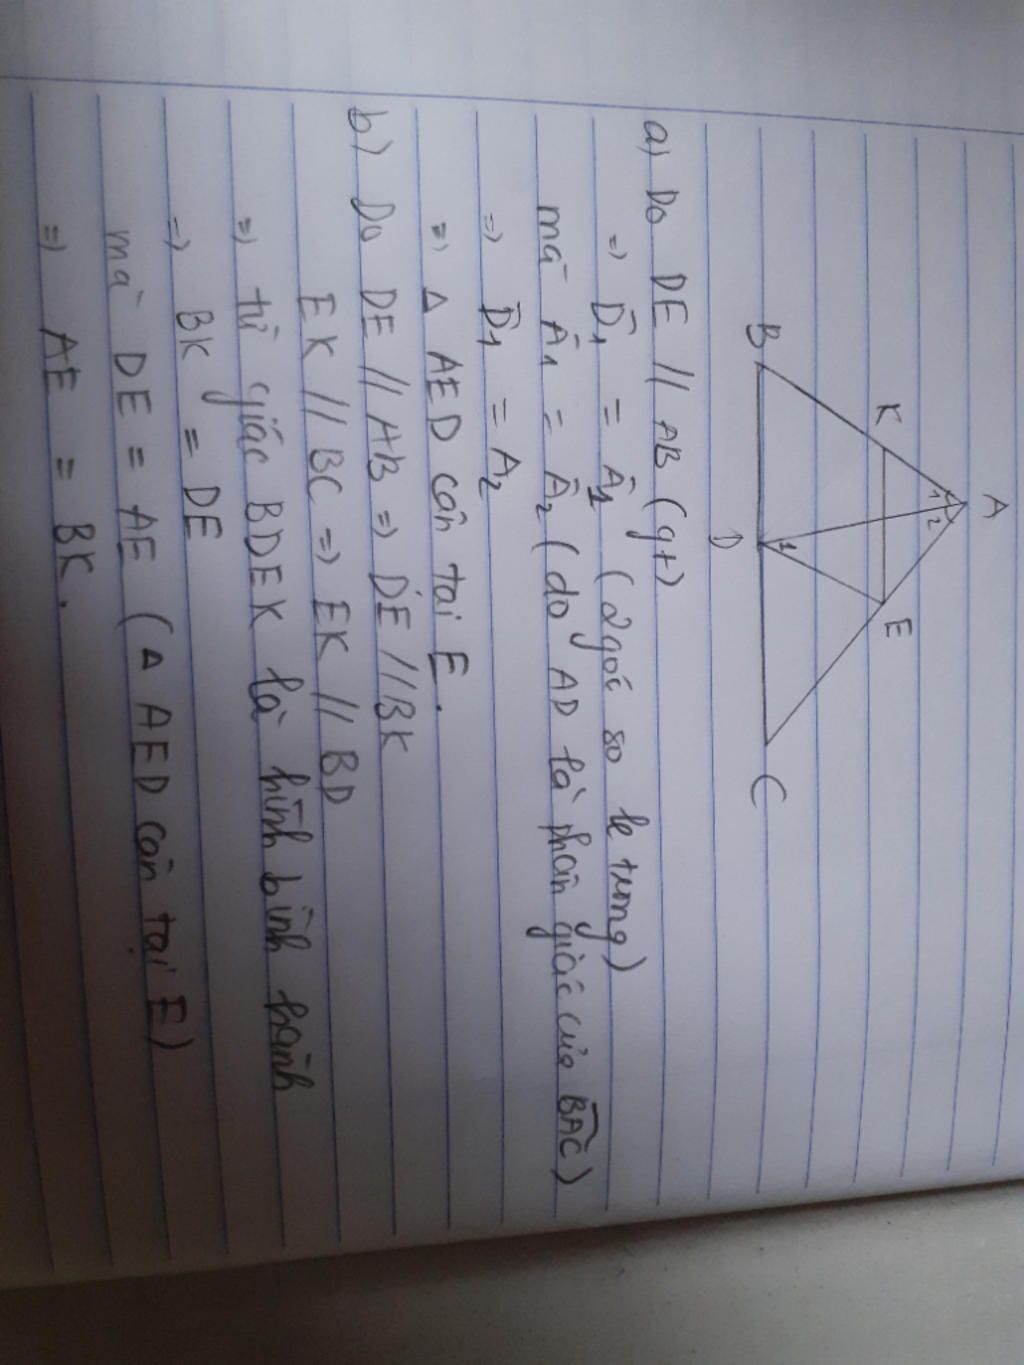 A
1 2
K
E
1
B
D
C
a) Do DE // AB (gt)
=> D̂1 = Â1 (2 góc so le trong)
mà Â1 = Â2 (do AD là phân giác của B̂AC)
=> D̂1 = A2
=> Δ AED cân tại E.
b) Do DE // AB => DE // BK
EK // BC => EK // BD
=> tứ giác BDEK là hình bình hành
=> BK = DE
mà DE = AE (Δ AED cân tại E)
=> AE = BK.